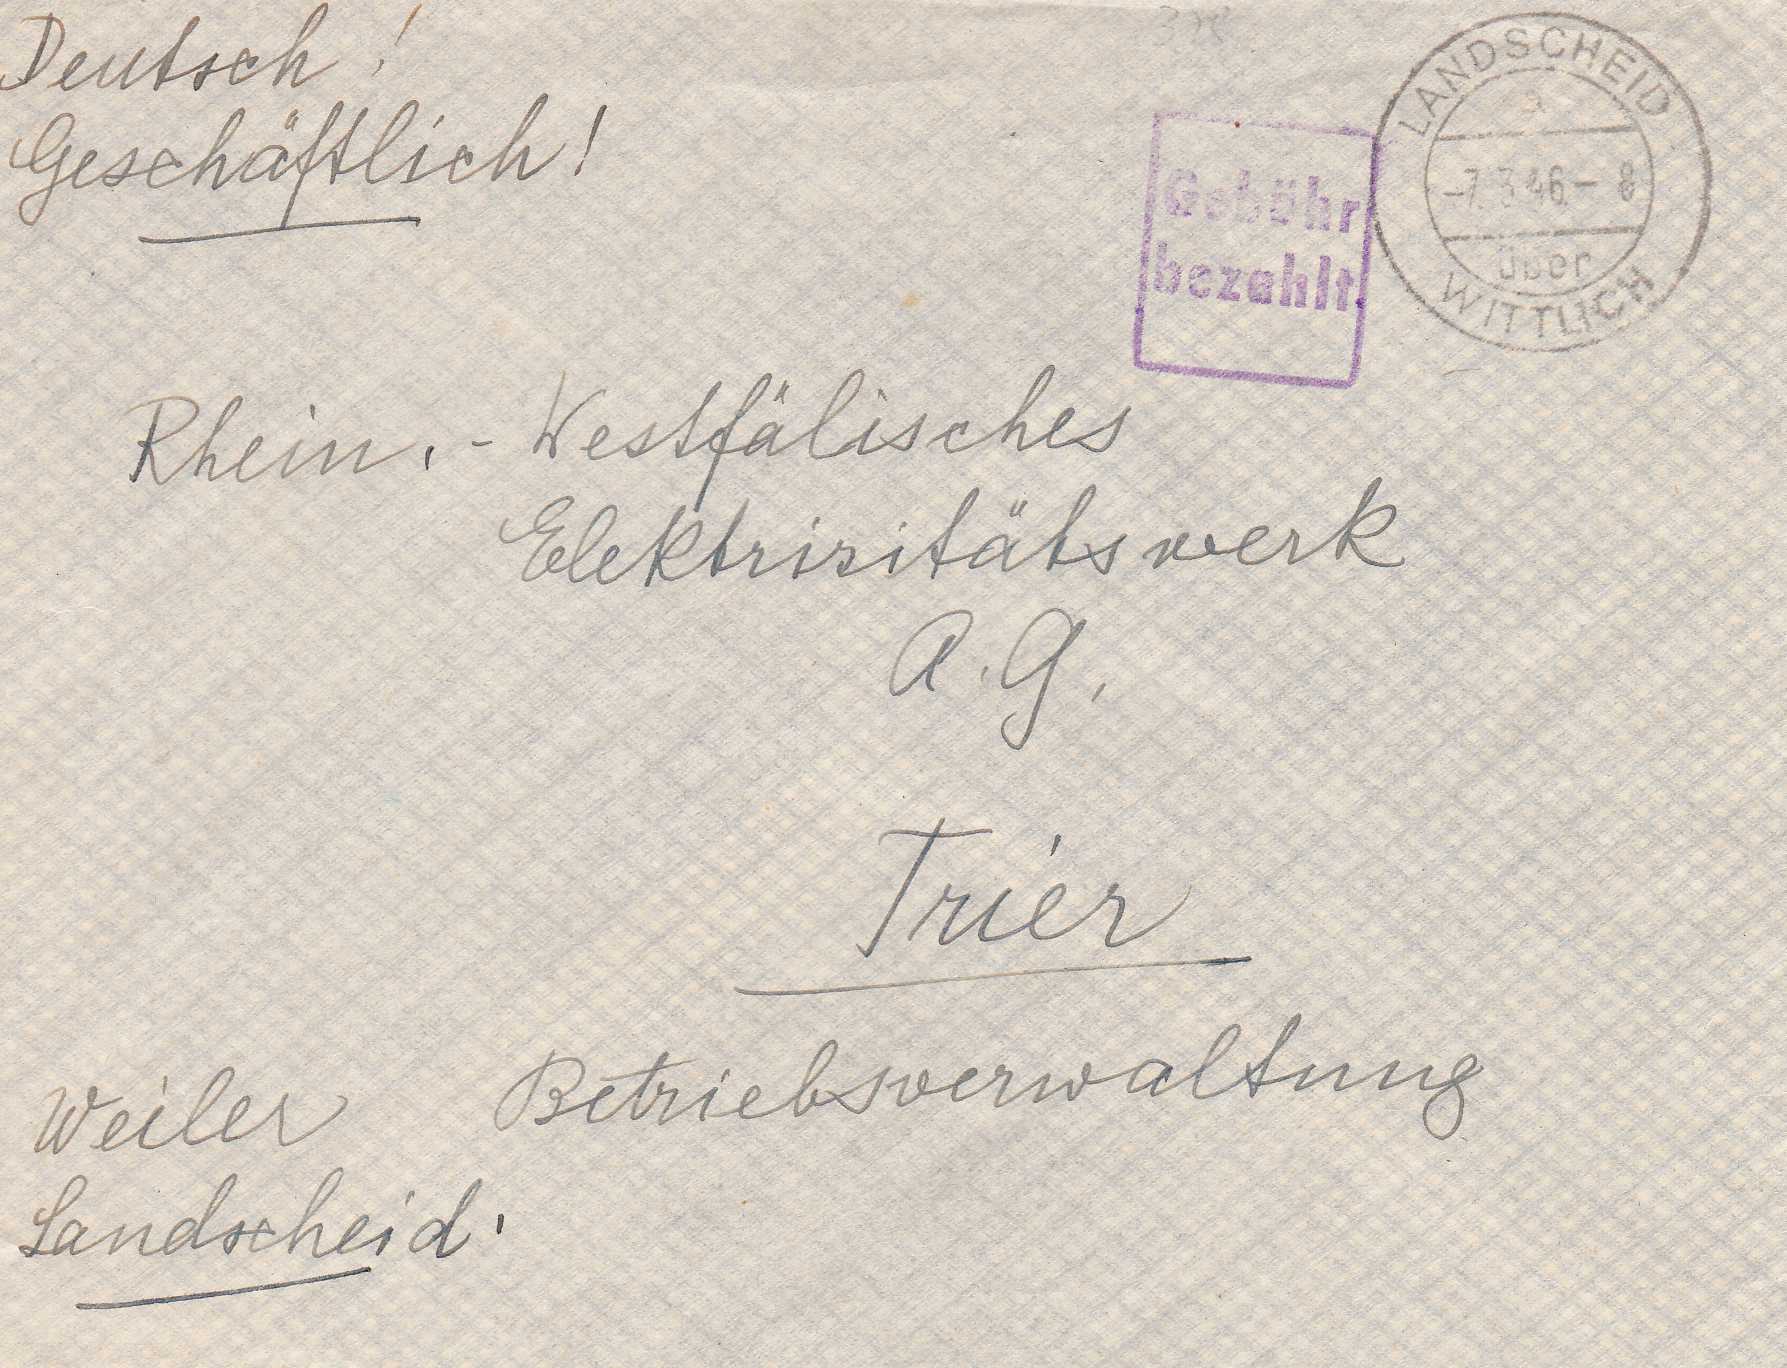 Deutsch!
Geschäftlich!
Gebühr
bezahlt
LANDSCHEID
a
-7.3.46.-8
über
WITTLICH
Rhein.-Westfälisches
Elektrizitätswerk
A.G.
Trier
Betriebsverwaltung
Weiler
Landscheid.